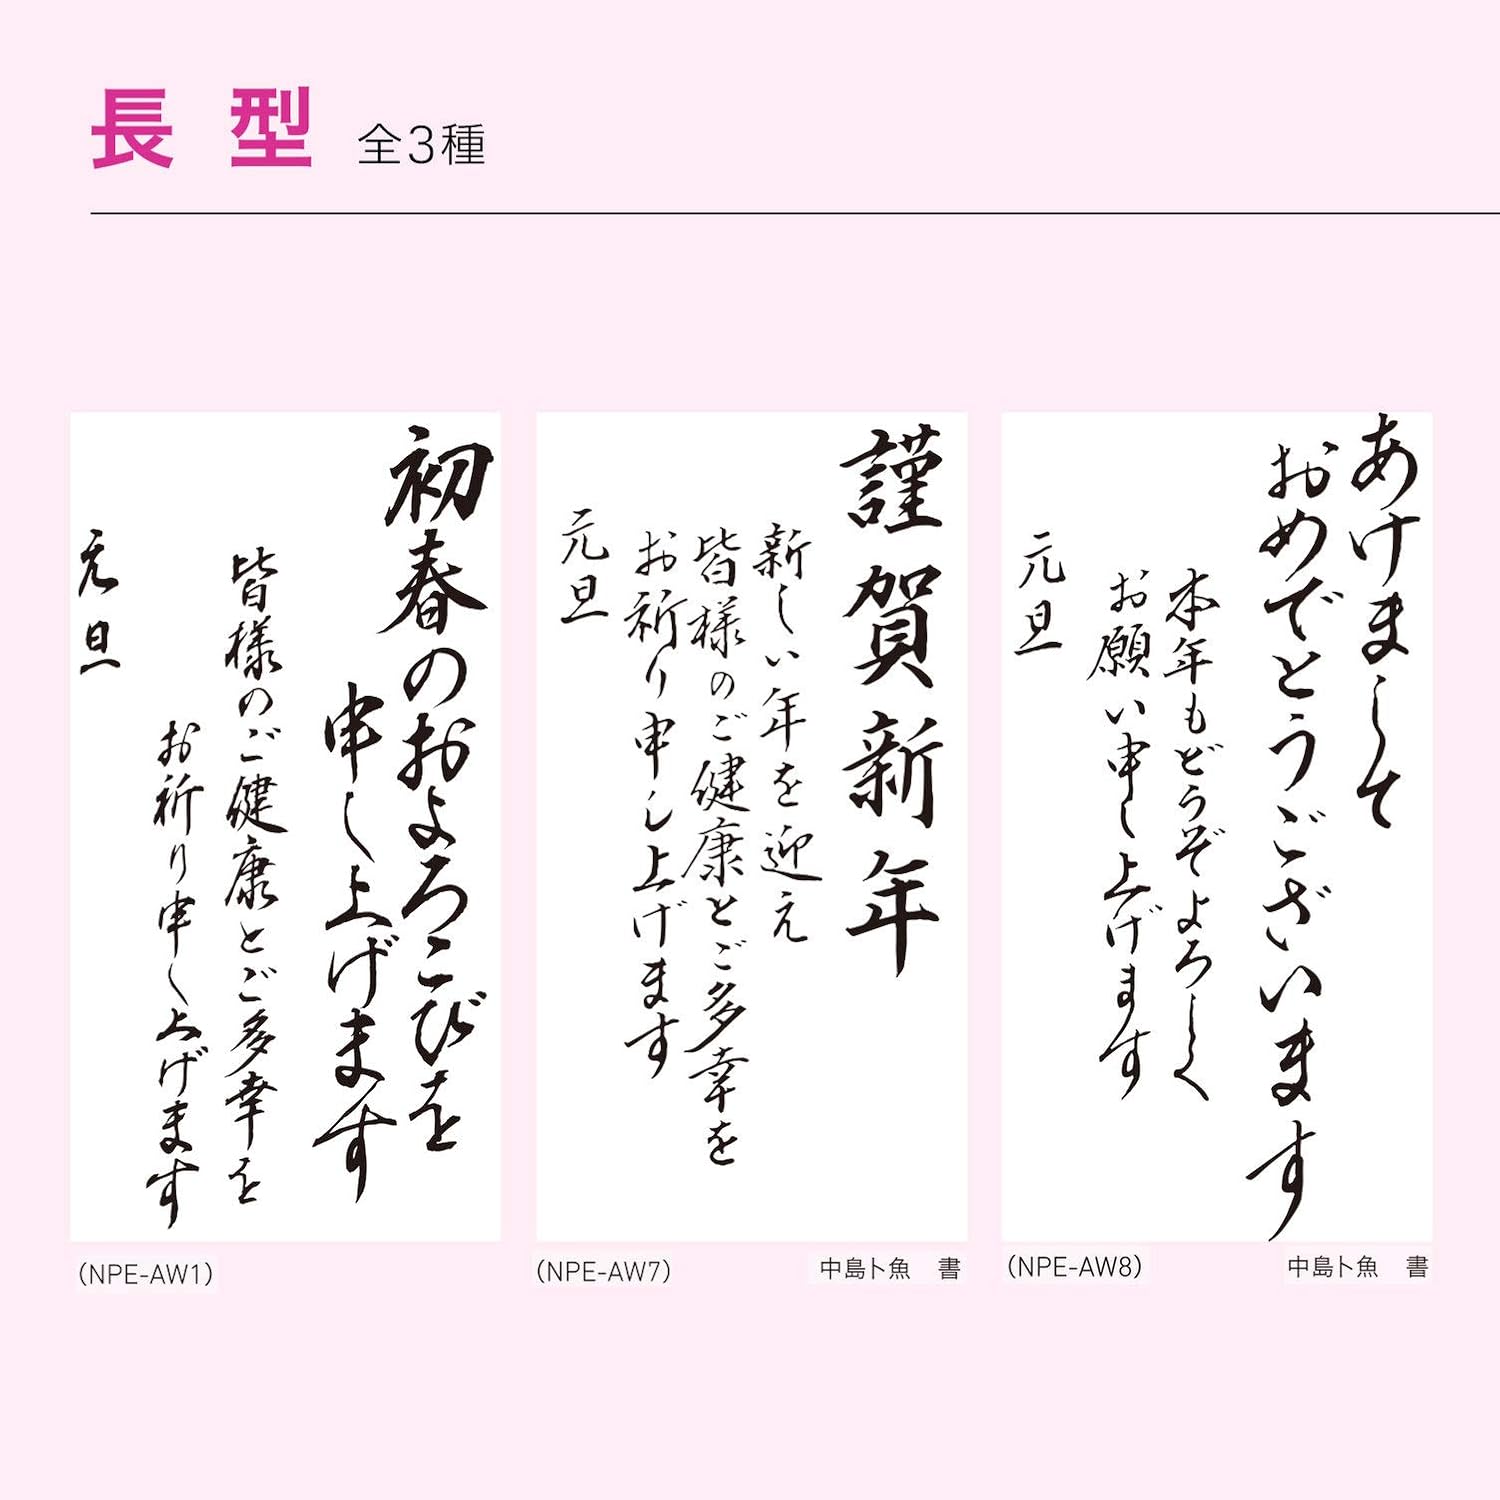 長型 全3種
初春のおよろこびを
申し上げます
皆様のご健康とご多幸を
お祈り申し上げます
元旦
(NPE-AW1)
謹賀新年
新しい年を迎え
皆様のご健康とご多幸を
お祈り申し上げます
元旦
(NPE-AW7)
中島卜魚 書
あけまして
おめでとうございます
本年もどうぞよろしく
お願い申し上げます
元旦
(NPE-AW8)
中島卜魚 書